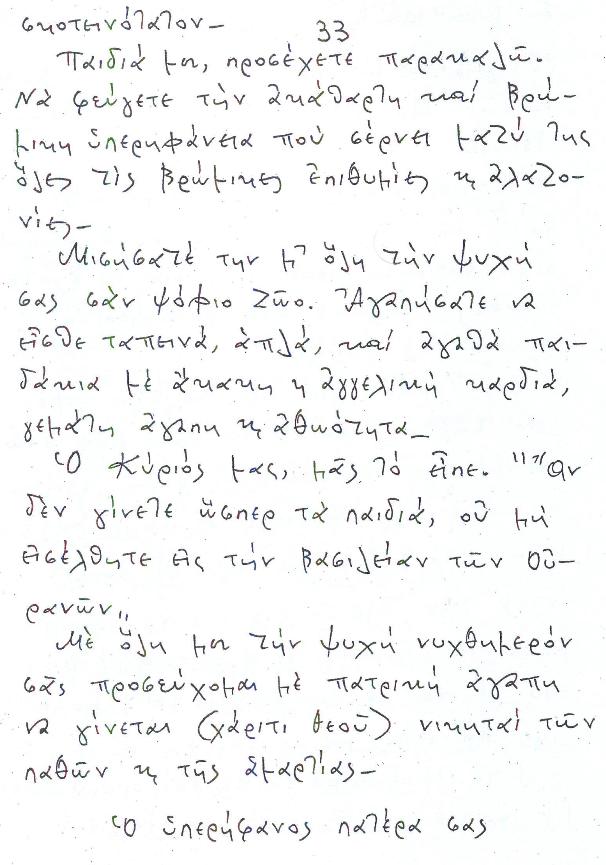 σκοτεινότατον–
33
Παιδιά μου, προσέχετε παρακαλῶ.
Νὰ φεύγετε τὴν ἀκάθαρτη καί βρώ-
μικη ὑπερηφάνεια ποὺ σέρνει μαζύ της
ὅλες τὶς βρώμικες ἐπιθυμίες κ ἀλαζο-
νίες–
Μισήσατέ την μ' ὅλη τὴν ψυχή
σας σὰν ψόφιο ζῶο. Ἀγαπήσατε νὰ
εἶσθε ταπεινά, ἁπλά, καί ἀγαθὰ παι-
δάκια μὲ ἄκακη κ ἀγγελική καρδιά,
γεμάτη ἀγάπη κ ἀθωότητα–
Ὁ Κύριός μας, μᾶς τό εἶπε. "Ἄν
δὲν γίνετε ὥσπερ τὰ παιδιά, οὐ μή
εἰσέλθητε εἰς τὴν βασιλείαν τῶν Οὐ-
ρανῶν„
Μὲ ὅλη μου τὴν ψυχή νυχθημερόν
σᾶς προσεύχομαι μὲ πατρική ἀγάπη
νὰ γίνεται (χάριτι θεοῦ) νικηταί τῶν
παθῶν κ τῆς ἁμαρτίας–
Ὁ ὑπερήφανος πατέρα σας